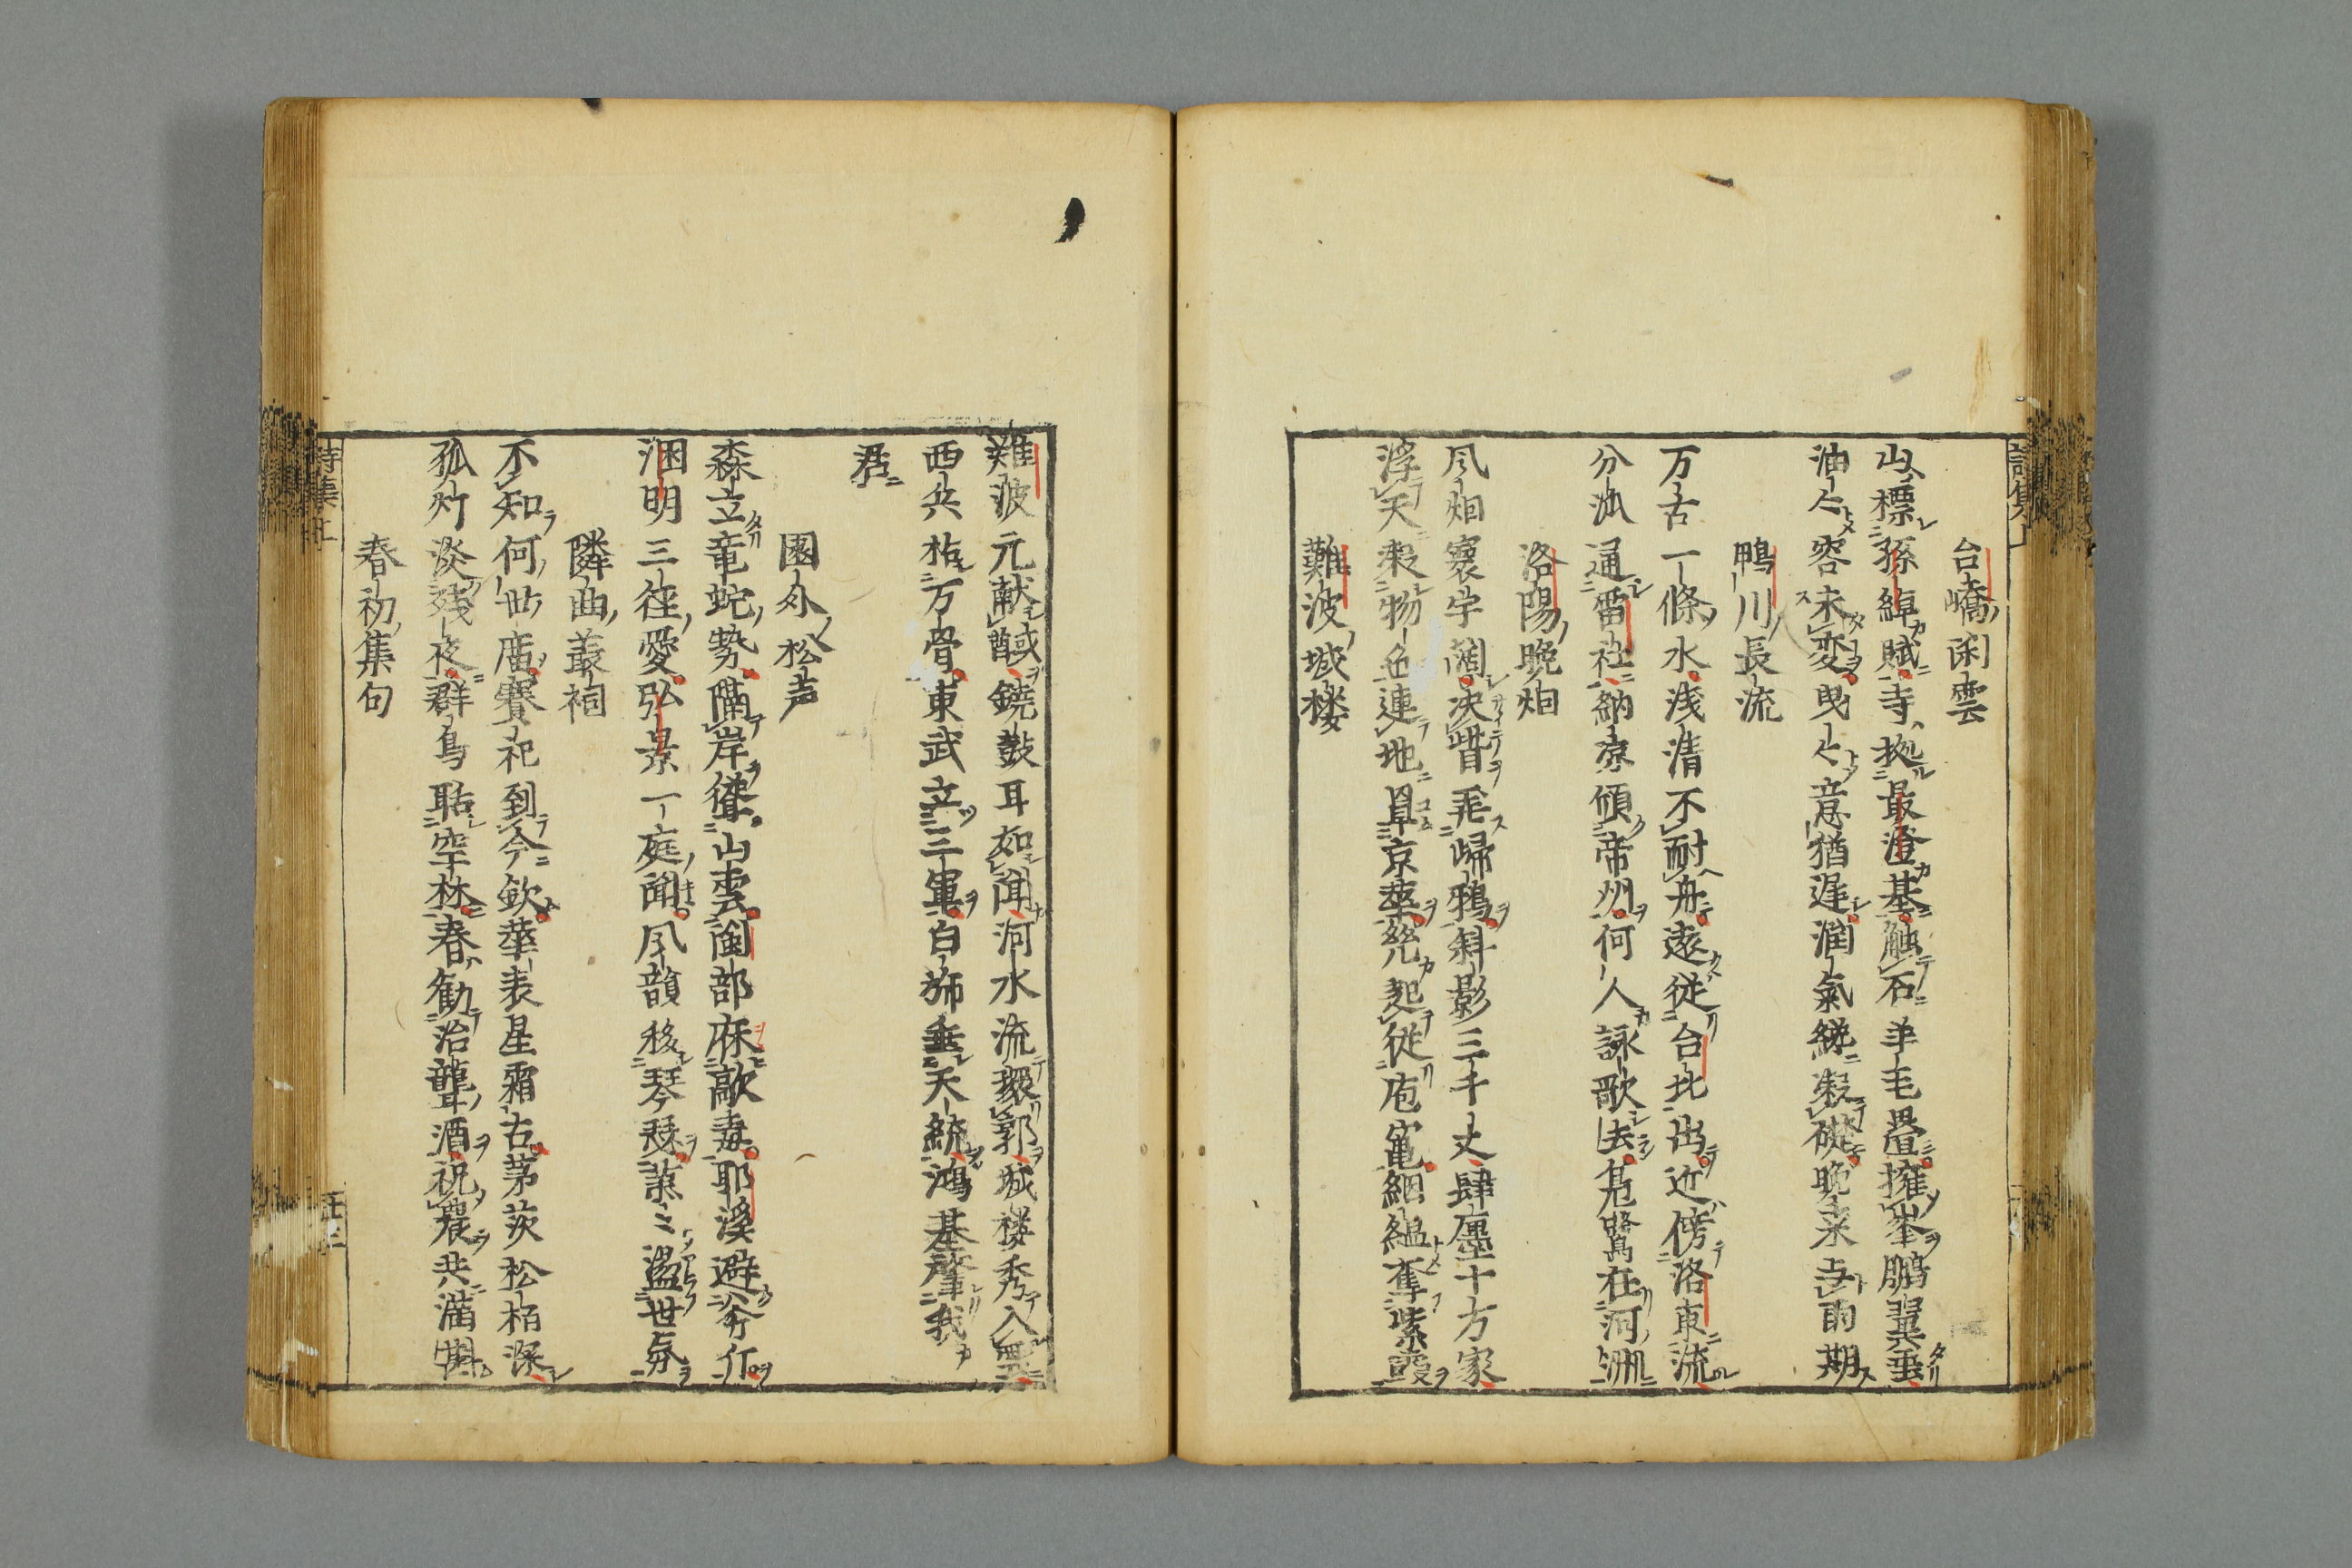 台嶠閑雲
山標孫綽賦寺拠最澄基触石羊毛畳擁峯鵬翼垂
油々容未変曳々意猶遅潤氣綫凝礎晩来与雨期
鴨川長流
万古一條水浅清不耐舟遠従台北出近傍洛東流
分派通雷社納涼傾帝州何人詠歌去鳧鷺在河洲
洛陽晩烟
风烟寰宇闊决眥乖歸鴉斜影三千丈肆廛十方家
浮天衆物色連地皇京華突起従庖竃絪縕奪紫霞
難波城楼
難波元献馘鐃鼓耳如聞河水流環郭城楼秀入雲
西兵枯万骨東武立三軍白斾垂天統鴻基肇我
君
園外松声
森立竜蛇勢隔岸聳山雲閩部麻敵毒耶溪避斧斤
淵明三徑愛弘景一庭聞风韻移琴瑟蕭々盪世氛
隣曲叢祠
不知何世廟賽祀到今欽華表星霜古茅茨松栢深
孤灯淡残夜群鳥聒空林春勧治聾酒祝農共満
春初集句
詩集上